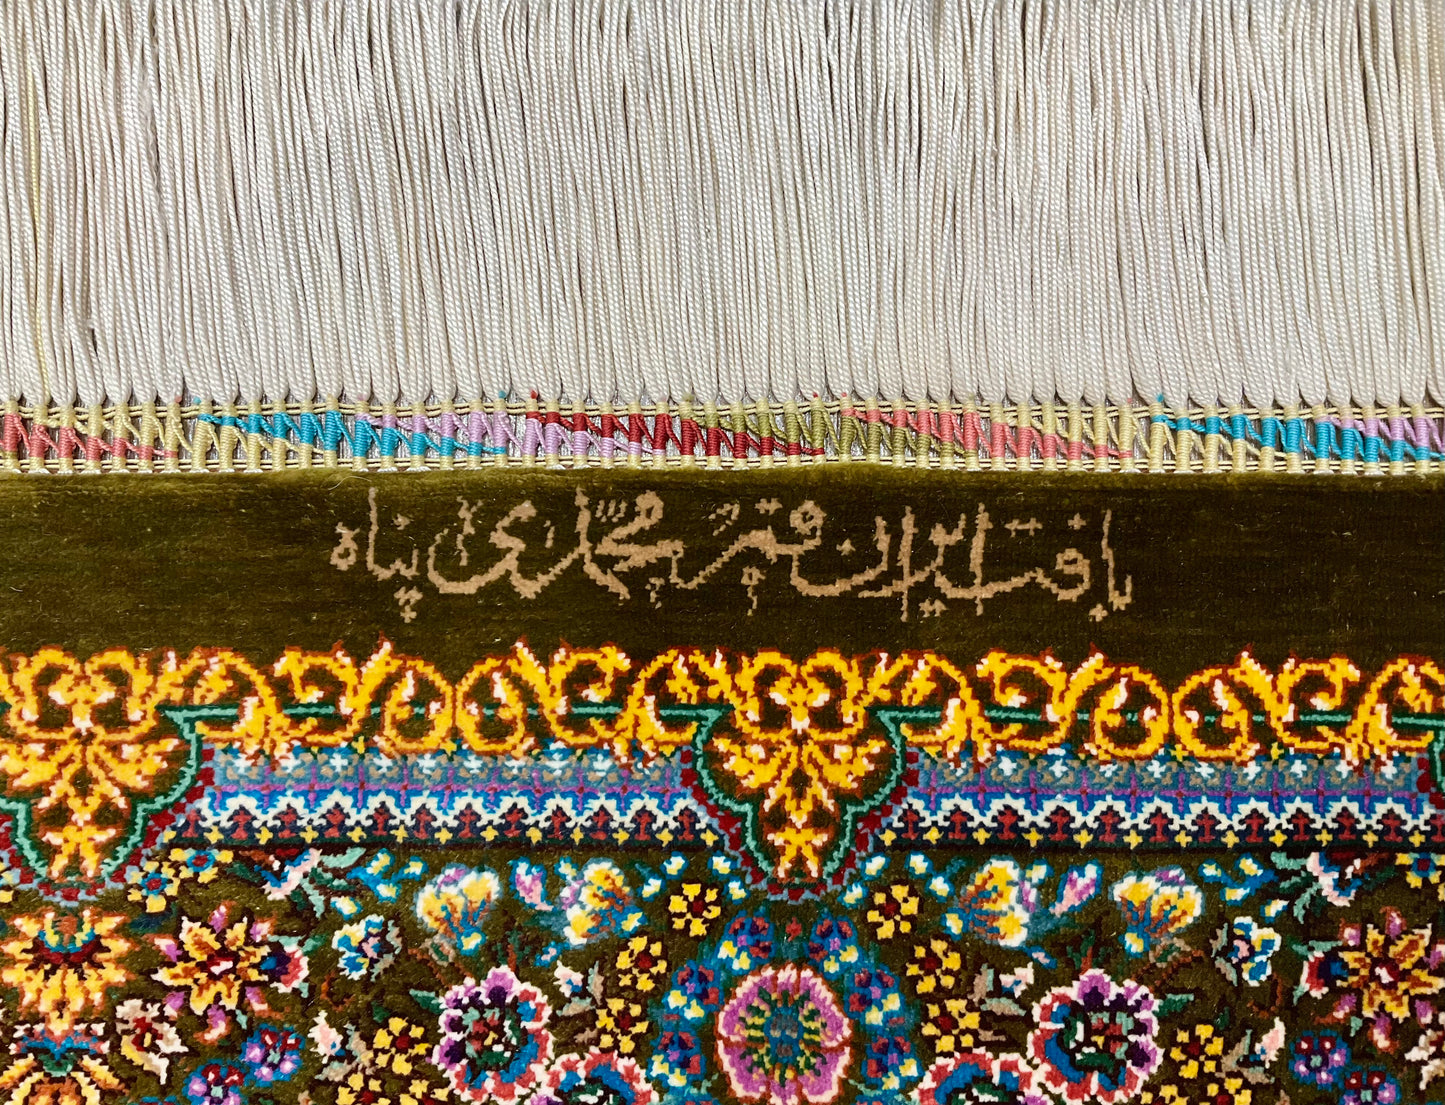 بافت ایران قم محمدی پناه